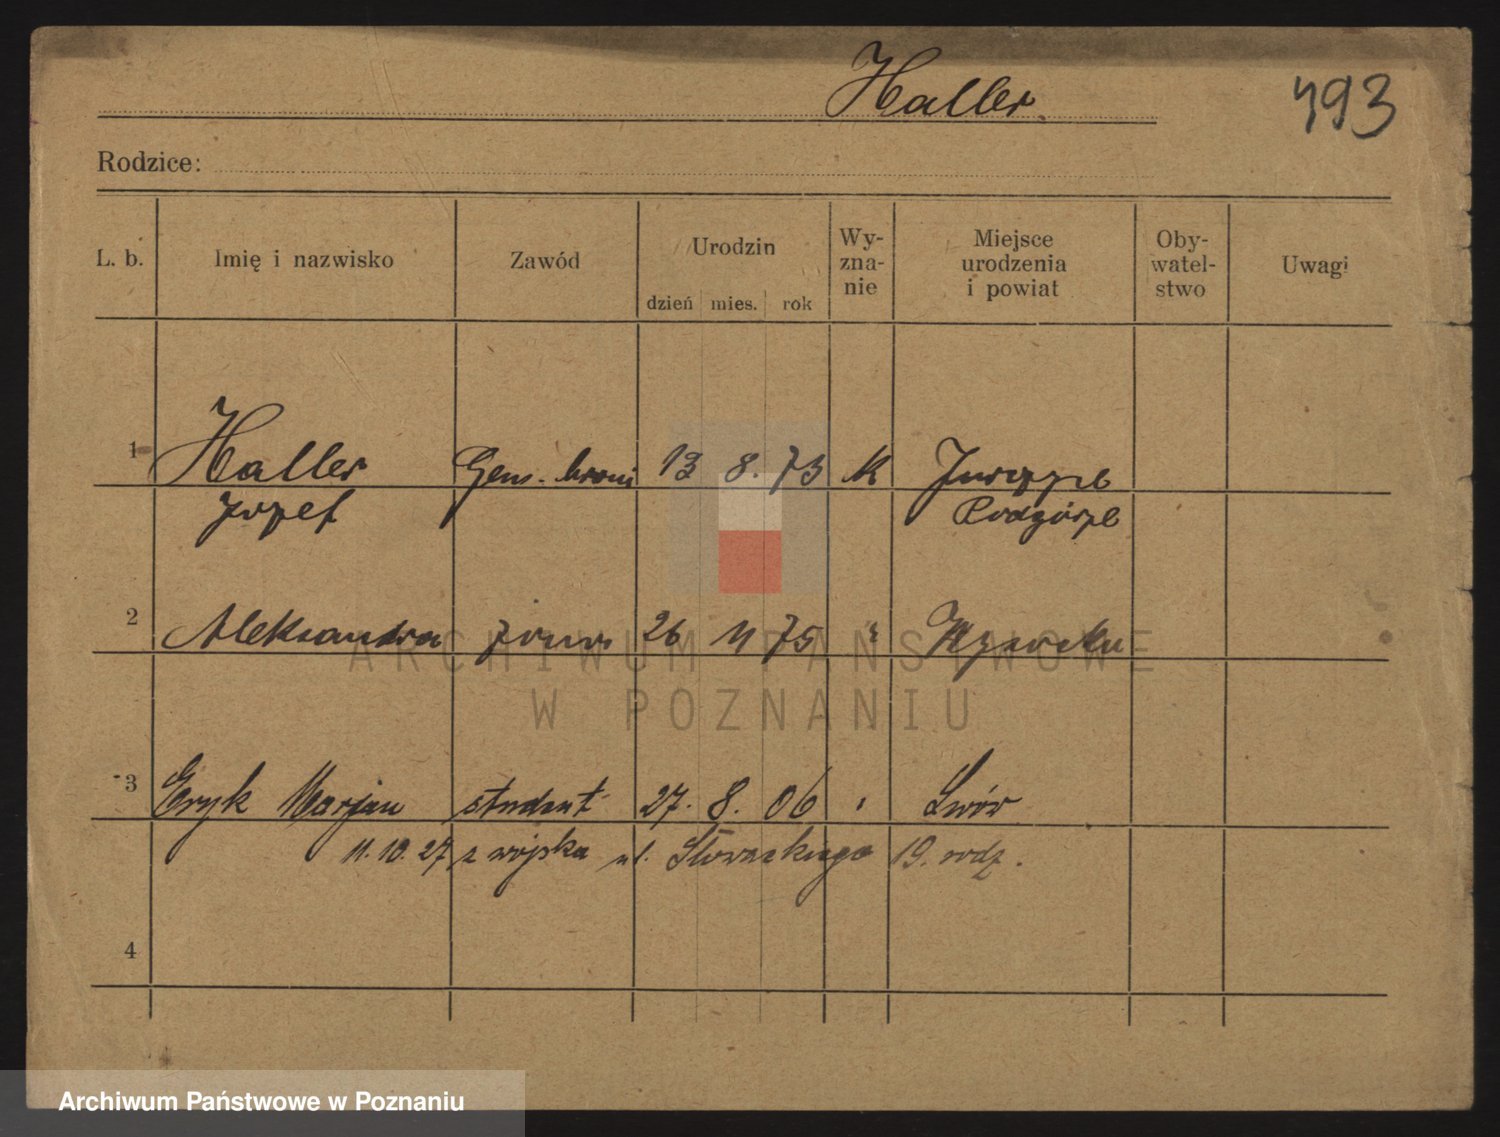 Haller
493
Rodzice:
L. b. Imię i nazwisko Zawód Urodzin dzień mies. rok Wy-zna-nie Miejsce urodzenia i powiat Oby-watel-stwo Uwagi
1 Haller Gen. broni 13 8. 73 k Jurczyce
Józef Podgórze
2 Aleksandra żona 26 11 75 "
3 Eryk Marjan student 27. 8. 06 " Lwów
11.10.27 z wojska ul. Słowackiego 19. rodz.
4
ARCHIWUM PAŃSTWOWE
W POZNANIU
Archiwum Państwowe w Poznaniu